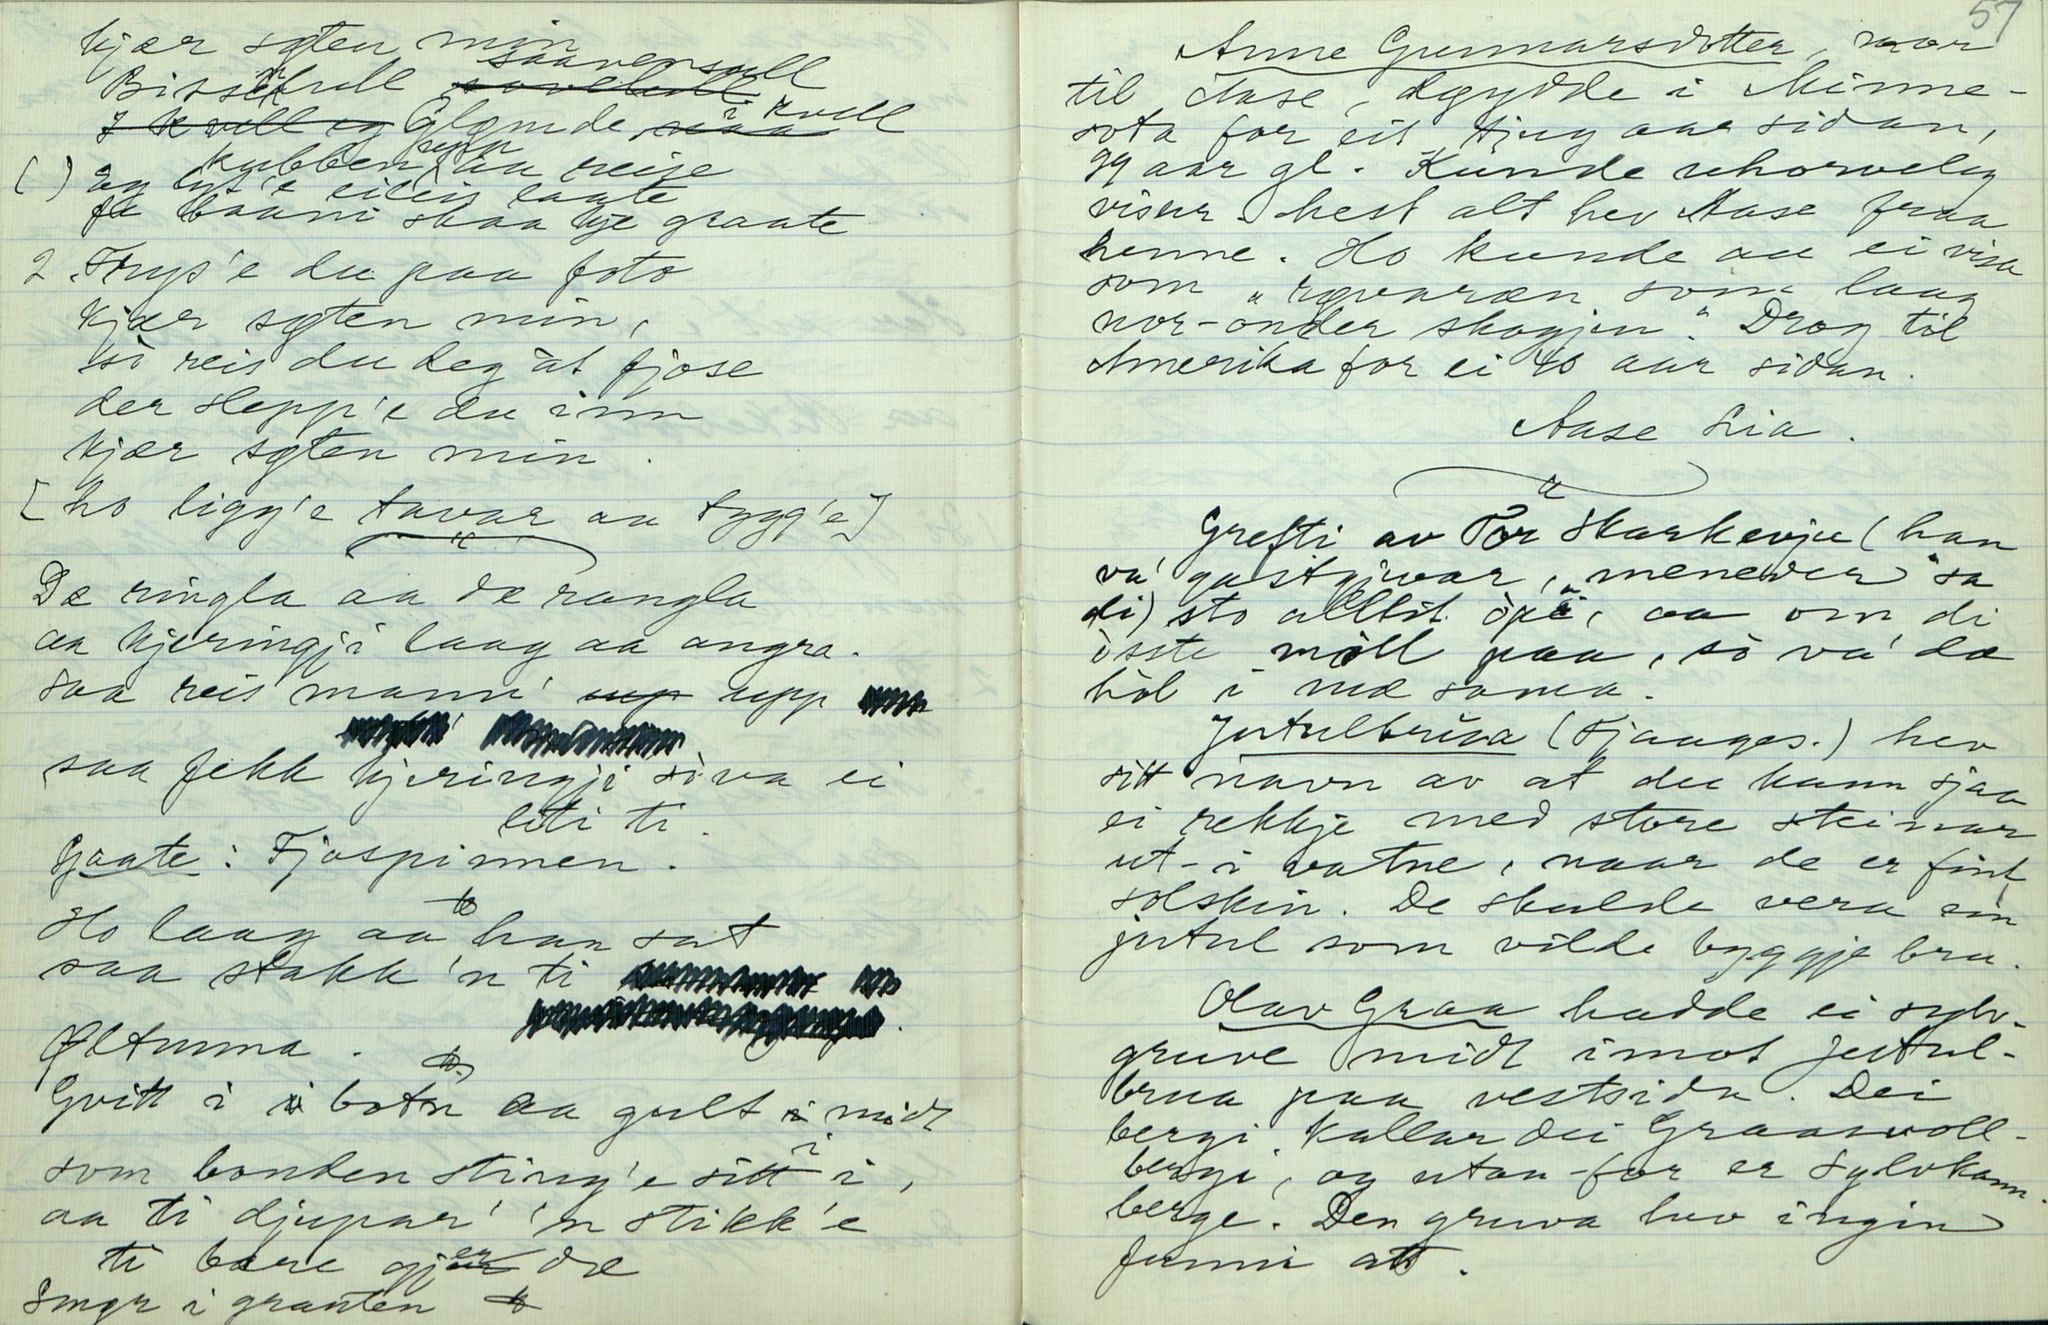 kjær søten min
Bissenfull saavensull
Gløymde i kvell
kubben
() eg lyt'e eitleis laate
fe baani skaa kje graate
2. Frys'e du paa foto
kjær søten min,
sò reis du deg åt fjose
der slepp'e du inn
kjær søten min.
[ho ligg'e tavar aa tygg'e]
Dæ ringla aa dæ rangla
aa kjeringji laag aa angra.
saa reis mann' upp
saa fekk kjeringji sòva ei
liti ti.
Gaate: Fjospinnen.
Ho laag aa han sat
saa stakk 'n ti
Øltunna.
Gvitt i botn aa gult i midt
som bonden sting'e sitt i,
aa ti djupar' 'n stikk'e
ti bære gjer dæ
Smør i grauten
57
Anne Gunnarsdotter, mor
til Aase, døydde i Minne-
sota for eit tjug aar sidan,
99 aar gl. Kunde uhorveleg
visur. Mest alt hev Aase fraa
henne. Ho kunde aa ei visa
som "røvaren som laag
nor-onder skogjen". Drog til
Amerika for ei 40 aar sidan.
Aase Lia.
Grefti av Tor Skarkevju (han
va' gastgjivar, "menever" sa
di) sto alltit òpi, aa om di
òsste mòll paa, sò va' dæ
hòl i mæ sama.
Jutulbrua (Tjaages.) hev
sitt navn av at du kann sjaa
ei rekkje med store steinar
ut-i vatne, naar de er fint
solskin. De skulde vera ein
jutul som vilde byggje bru.
Olav Graa hadde ei sylv-
gruve midt imot Jutul-
brua paa vestsida. Dei
bergi kallar dei Graavoll-
bergi, og utan-for er Sylvkann-
berge. Den gruva hev ingin
funni att.